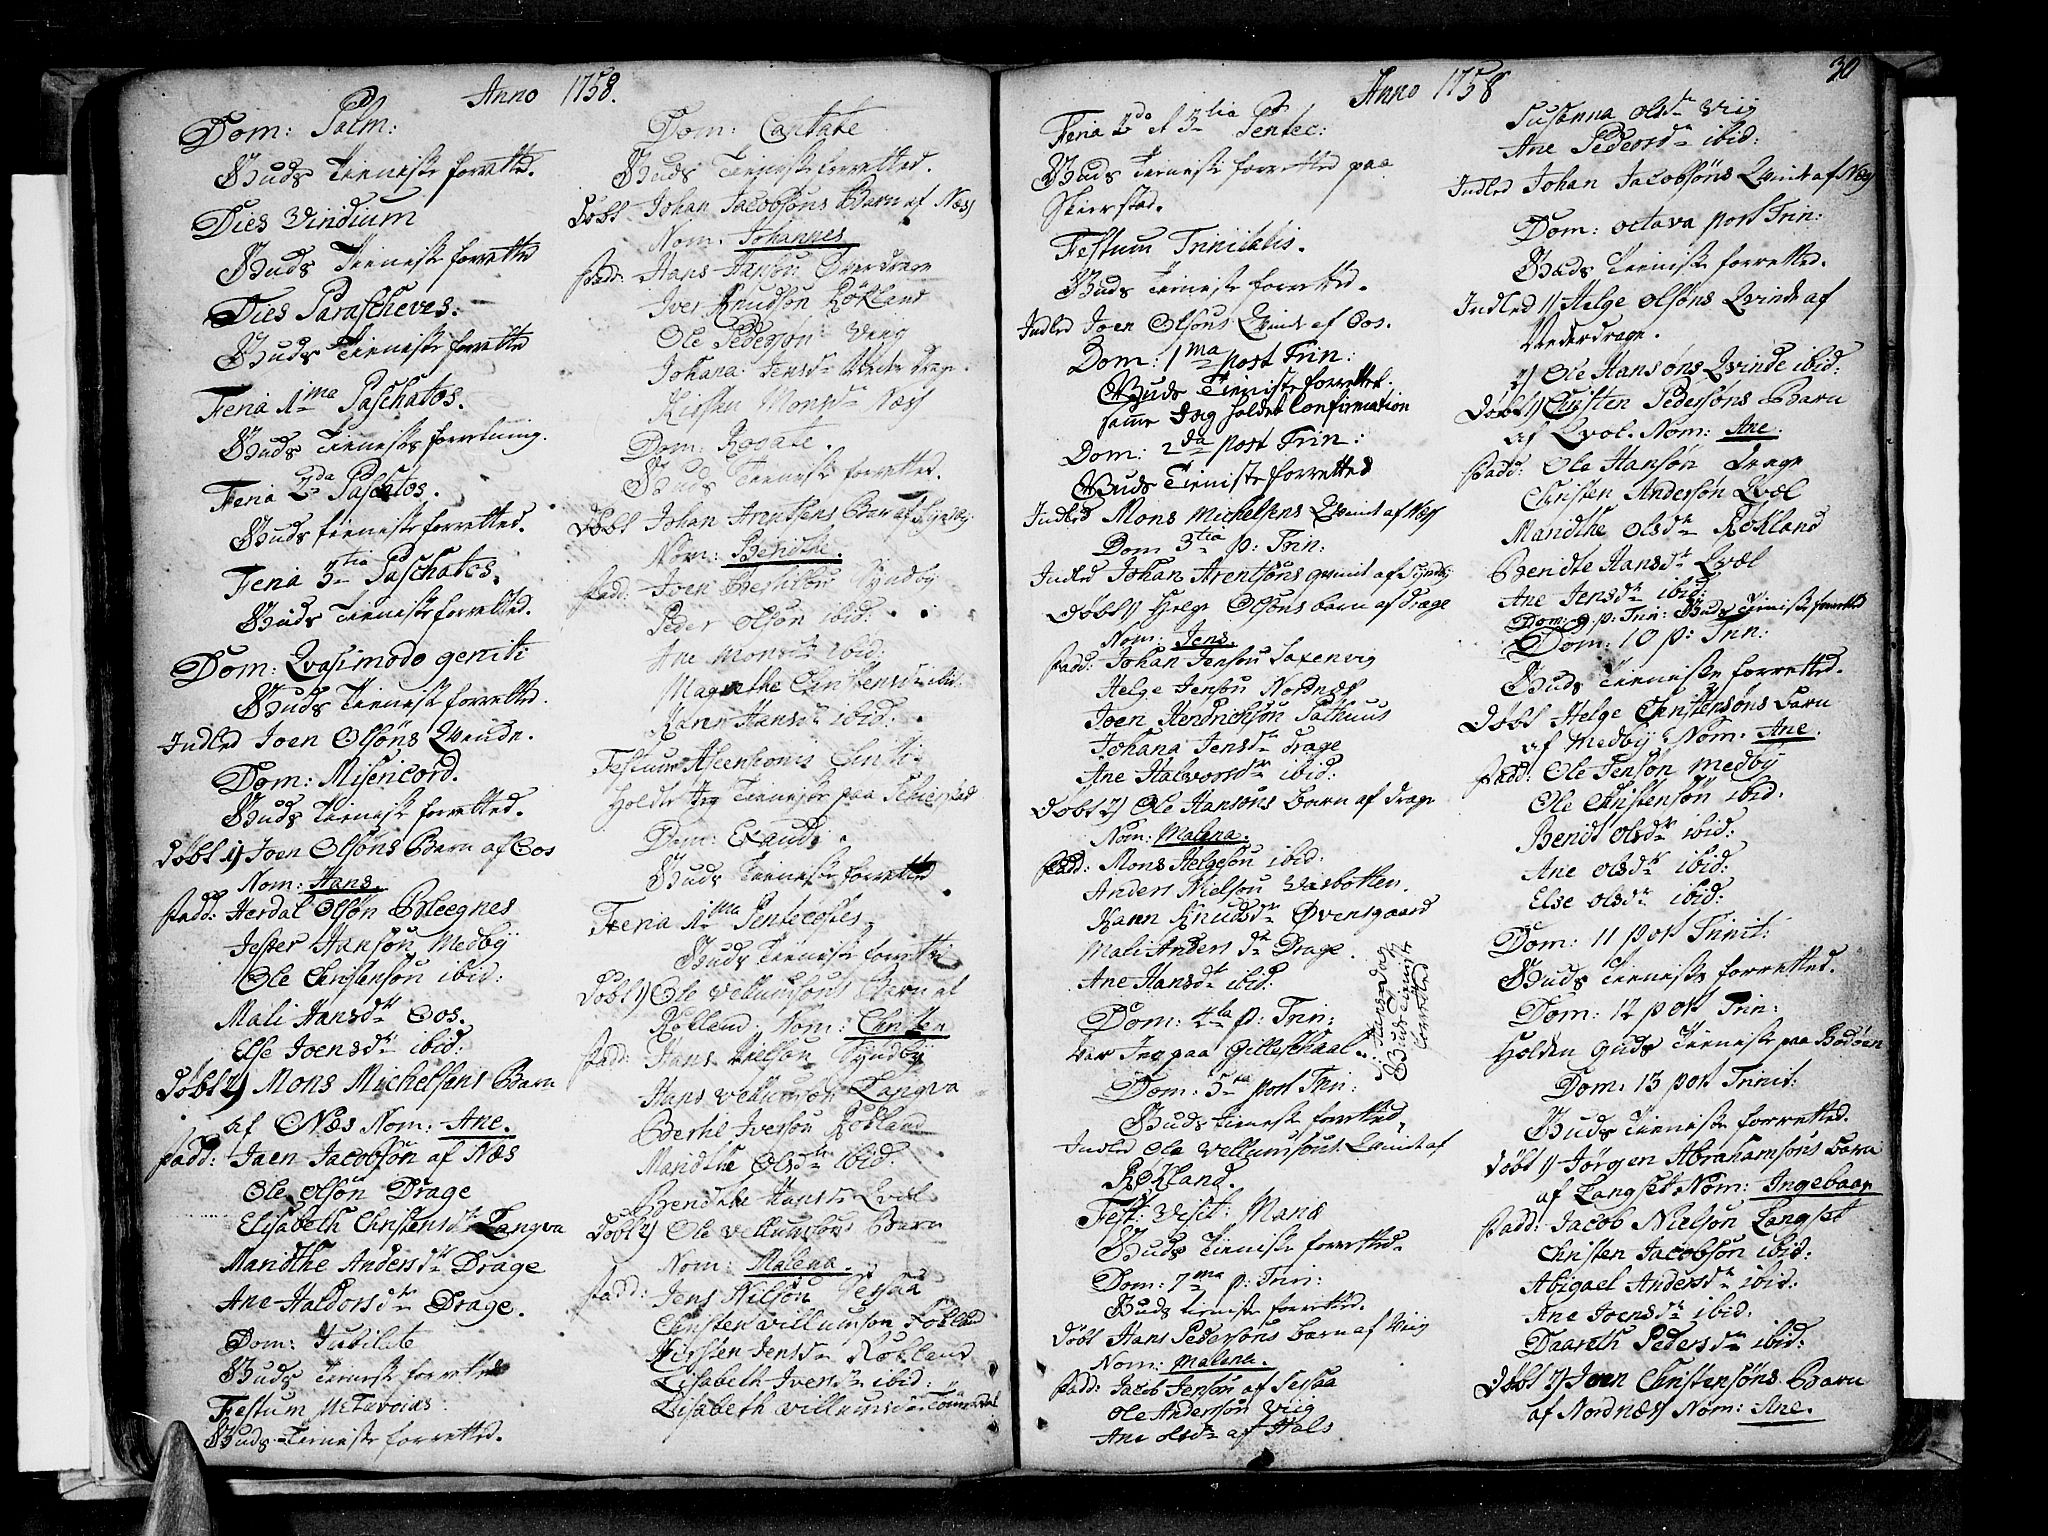 Anno 1758.
Dom: Palm:
Guds Tieneste forretted.
Dies Viridium
Guds Tieneste forretted
Dies Parascheves.
Guds Tieneste forretted
Feria 1ma Paschatos.
Guds Tienestes forretning.
Feria 2da Paschatos.
Guds tieneste forretted.
Feria 3tia Paschatos.
Guds Tieneste forretted.
Dom: Qvasimodo geniti
Guds Tieneste forretted.
Indled Joen Olsöns Qvinde.
Dom: Misericord.
Guds Tieneste forretted.
Döbt 1) Joen Olsöns Barn af Oos
Nom: Hans.
Fadd: Herdal Olsön Blecgnes
Jesper Hansön Medby
Ole Christensön ibid:
Mali Hansdtr Oos.
Else Joensdtr ibid:
Döbt 2) Mons Michelsens Barn
af Næs Nom: Ane.
Fadd: Jaen Jacobsön af Næs
Ole Olsön Drage
Elisabeth Christensdtr Langva
Maridthe Andersdtr Drage
Ane Haldorsdtr Drage.
Dom: Jubilate
Guds Tieneste forretted
Festum
Guds Tieneste forretted.
Dom: Cantate
Guds Tieneste forretted.
Döbt Johan Jacobsöns Barn af Næs
Nom: Johannes
Fadd: Hans Hansön Överdrage
Iver Knudsön Rökland
Ole Pedersön Viig
Johana Jensdr Under Drage.
Kirsten Monsdr Næss
Dom: Rogate.
Guds Tieneste forretted.
Döbt Johan Arentsens Barn af
Nom: Beridthe.
Fadd: Joen Syndby
Peder Olsön ibid:
Ane Monsdtr ibid:
Magrethe Christensdr ibid.
Karen Hansdtr ibid:
Festum Ascentionis Christi
Holdte Jeg Tieneste paa Schierstad
Dom: Exaudi.
Guds Tieneste forretted
Feria 1ma Pentecostes
Guds Tieneste forretted
Döbt 1) Ole Vellumsöns Barn af
Rökland. Nom: Christen
Fadd: Hans Nielsön Syndby
Hans Vellumsön Langva
Berthel Iversön Rökland
Maridthe Olsdtr ibid.
Bendthe Hansdr Qvæl.
Döbt 2) Ole Vellumsöns Barn
Nom: Malena.
Fadd: Jens Nilsön Sessaa
Christen Villumsön Rökland
Kirsten Jensdr Rökland
Lisabeth Iversdr ibid:
Lisabeth Villumsdr
Anno 1758
30
Feria 2da et 3tia Pentec:
Guds Tieneste forretted paa
Skierstad.
Festum Trinitatis.
Guds Tieneste forretted.
Indled Joen Olsöns Qvinde af Oos.
Dom: 1ma post Trin:
Guds Tieniste forretted.
samme Dag holdet Confirmation
Dom: 2da post Trin:
Guds Tieniste forretted
Indled Mons Michelsens Qvinde af Næss
Dom 3tia p: Trin:
Indled Johan Arentsöns qvinde af Syndby
Döbt 1) Helge Olsöns barn af Drage
Nom: Jens.
Fadd: Johan Jensön Saxenvig
Helge Jensön Nordnæs
Joen Hendrichsön Pothuus
Johana Jensdr Drage
Ane Halvorsdtr ibid:
Döbt 2) Ole Hansöns barn af Drage
Nom: Malena.
Fadd: Mons Helgesön ibid:
Anders Nielsön Vasbotten.
Karen Knudsdr Øvensgaard
Mali Andersdr Drage.
Ane Hansdr ibid:
Dom: 4ta p: Trin:
Var Jeg paa Gilleschaal.
St: Hans Dag
Guds Tieniste
forretted
Dom: 5ta post Trin:
Guds Tieneste forretted.
Indled Ole Vellumsöns Qvinde af
Rökland.
Fest: Visit: Mariæ
Guds Tieneste forretted.
Dom: 7ma p: Trin:
Guds tieneste forretted.
Döbt Hans Pedersöns barn af Viig
Nom: Malena.
Fadd: Jacob Jensön af Sessaa
Ole Andersön Viig
Ane Olsdr af Hals
Susanna Olsdr Viig
Ane Pedersdr ibid:
Indled Johan Jacobsöns Qvinde af Næss
Dom: octava post Trin:
Guds Tieneste forretted.
Indled 1) Helge Olsöns Qvinde af
Nederdrage.
2) Ole Hansöns Qvinde ibid:
Döbt 1) Christen Pedersöns Barn
af Qvol. Nom: Ane.
Fadd: Ole Hansön Drage
Christen Andersön Qvæl
Maridthe Olsdtr Rökland
Bendte Hansdtr Qvæl
Ane Jensdtr ibid:
Dom: 9 p: Trin: Guds Tieniste forretted
Dom: 10 p: Trin:
Guds Tieneste forretted.
Döbt Helge Christensöns barn
af Medby Nom: Ane.
Fadd: Ole Jensön Medby
Ole Christensön ibid:
Beridt Olsdtr ibid:
Ane Olsdtr ibid:
Else Olsdtr ibid:
Dom: 11 post Trinit:
Guds Tieneste forretted.
Dom: 12 post Trin:
Holden Guds Tieneste paa Bodöen
Dom: 13 post Trinit:
Guds Tieneste forretted.
Döbt 1) Jörgen Abrahamsöns barn
af Langset Nom: Ingebaar
Fadd: Jacob Nielsön Langset
Christen Jacobsön ibid:
Abigael Andersdtr ibid:
Ane Joensdtr ibid:
Daareth Pedersdr ibid:
Döbt 2) Joen Christensöns Barn
af Nordnæss Nom: Ane.